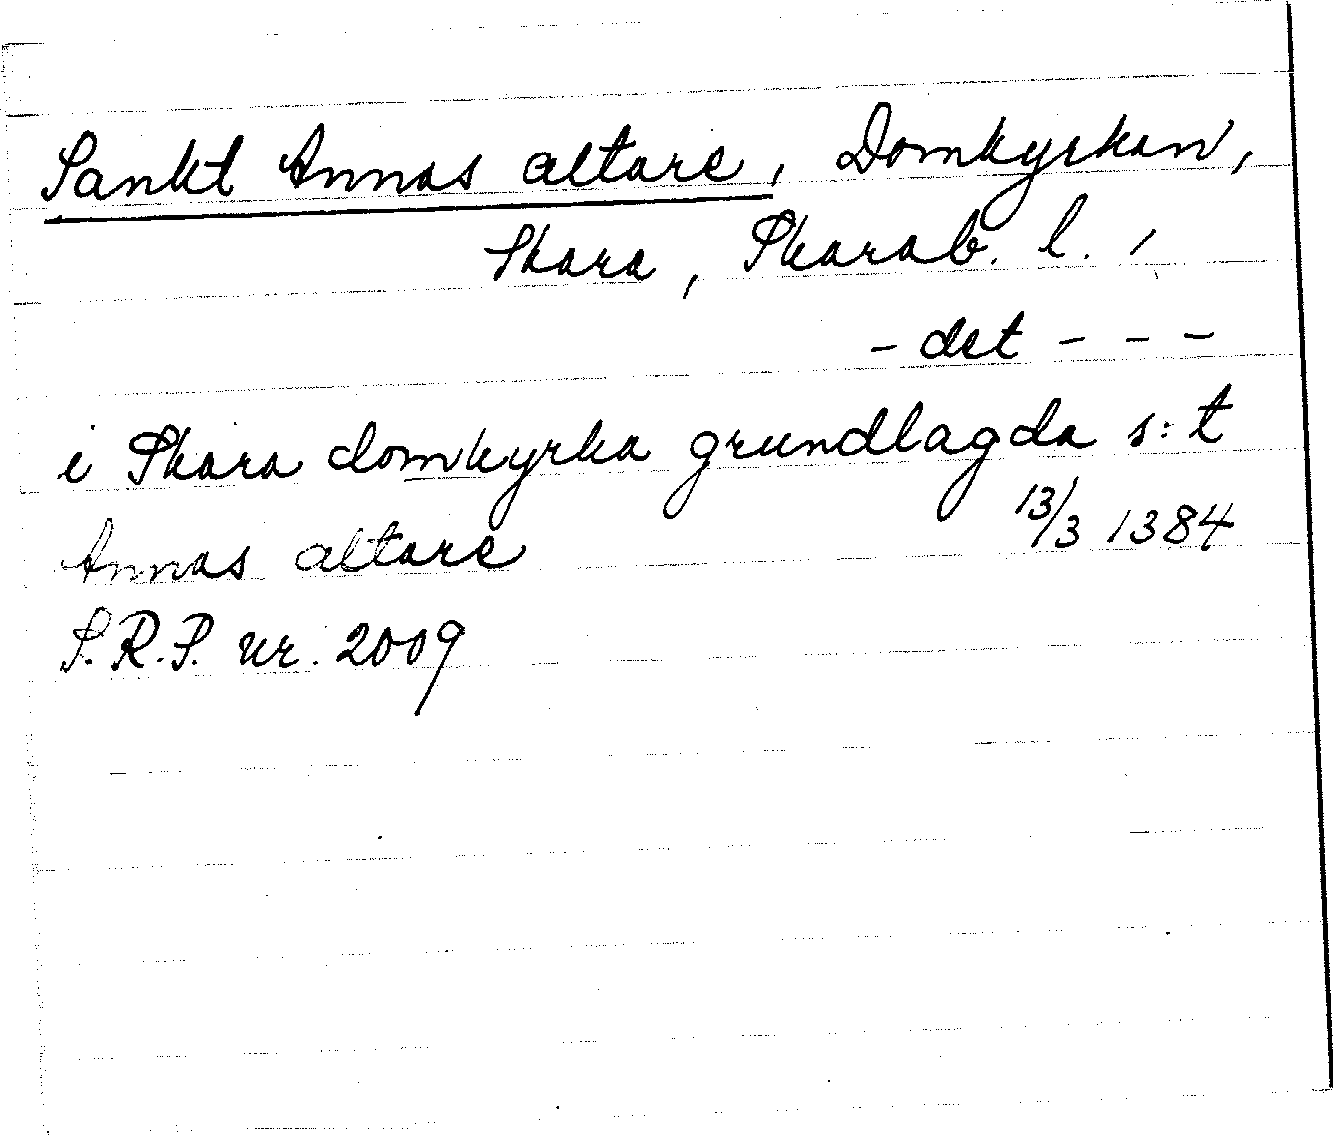 Sankt Annas altare, Domkyrkan,
Skara, Skarab. l.,
- det - - -
i Skara domkyrka grundlagda s:t
Annas altare 13/3 1384
S.R.P. nr. 2009